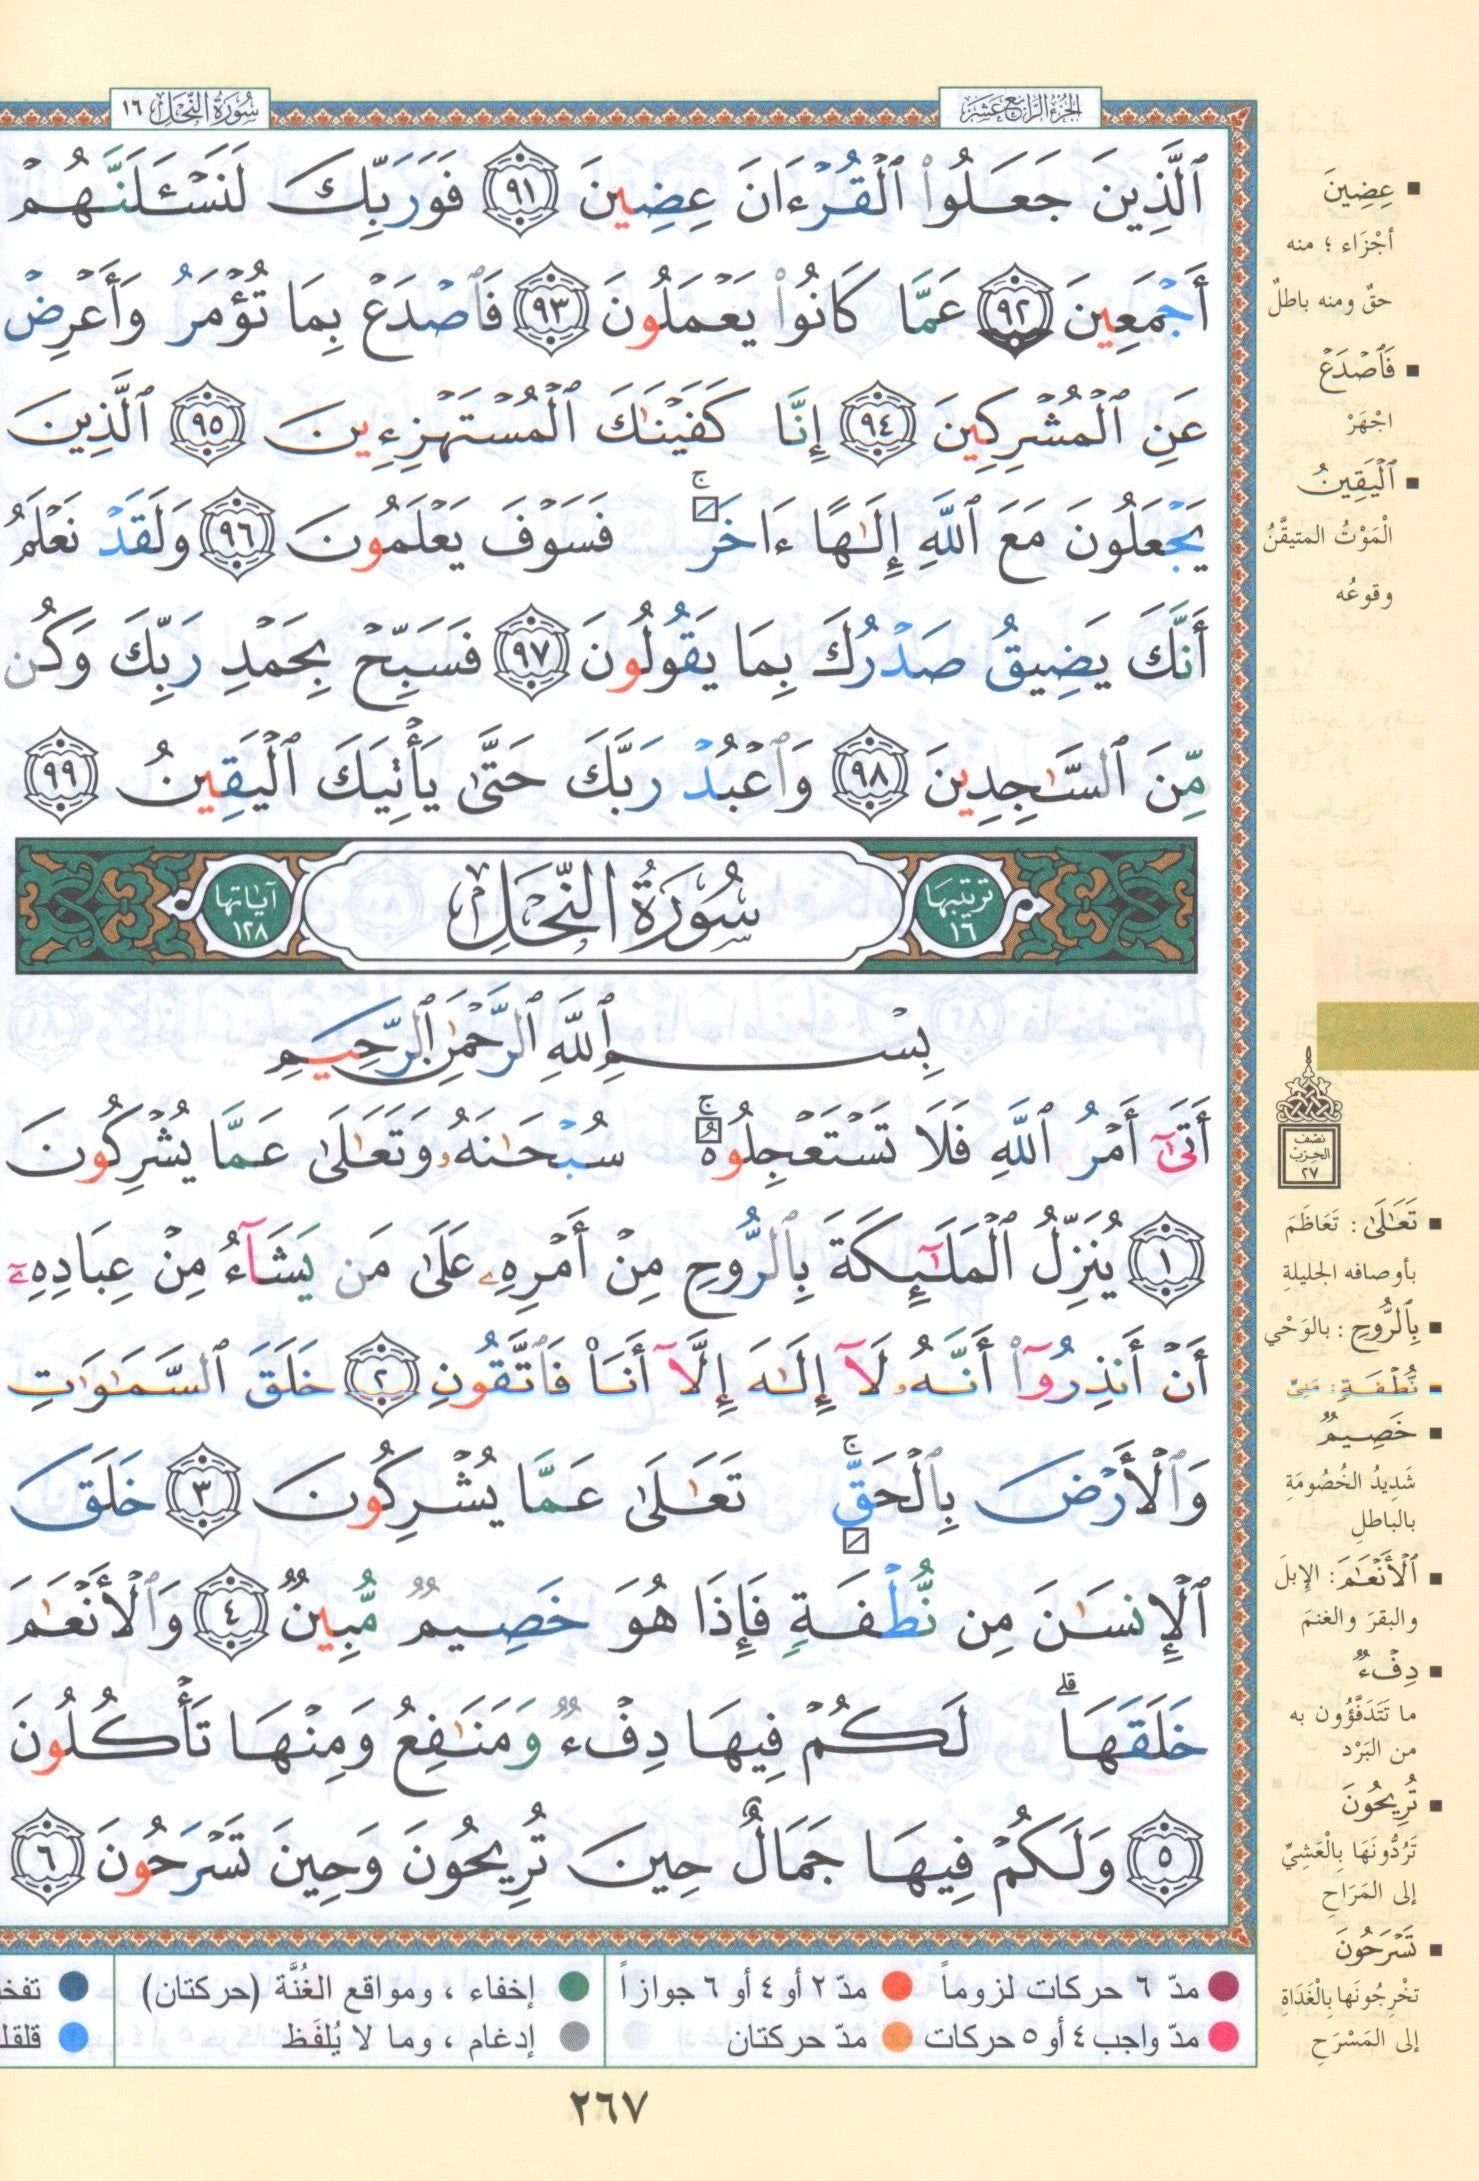 الجزء الرابع عشر
سورة النحل ١٦
ٱلَّذِينَ جَعَلُوا۟ ٱلْقُرْءَانَ عِضِينَ ٩١ فَوَرَبِّكَ لَنَسْـَٔلَنَّهُمْ
أَجْمَعِينَ ٩٢ عَمَّا كَانُوا۟ يَعْمَلُونَ ٩٣ فَٱصْدَعْ بِمَا تُؤْمَرُ وَأَعْرِضْ
عَنِ ٱلْمُشْرِكِينَ ٩٤ إِنَّا كَفَيْنَـٰكَ ٱلْمُسْتَهْزِءِينَ ٩٥ ٱلَّذِينَ
يَجْعَلُونَ مَعَ ٱللَّهِ إِلَـٰهًا ءَاخَرَ ۚ فَسَوْفَ يَعْلَمُونَ ٩٦ وَلَقَدْ نَعْلَمُ
أَنَّكَ يَضِيقُ صَدْرُكَ بِمَا يَقُولُونَ ٩٧ فَسَبِّحْ بِحَمْدِ رَبِّكَ وَكُن
مِّنَ ٱلسَّـٰجِدِينَ ٩٨ وَٱعْبُدْ رَبَّكَ حَتَّىٰ يَأْتِيَكَ ٱلْيَقِينُ ٩٩
ترتيبها ١٦ سُورَةُ النَّحْلِ آياتها ١٢٨
بِسْمِ ٱللَّهِ ٱلرَّحْمَـٰنِ ٱلرَّحِيمِ
أَتَىٰٓ أَمْرُ ٱللَّهِ فَلَا تَسْتَعْجِلُوهُ ۚ سُبْحَـٰنَهُۥ وَتَعَـٰلَىٰ عَمَّا يُشْرِكُونَ
١ يُنَزِّلُ ٱلْمَلَـٰٓئِكَةَ بِٱلرُّوحِ مِنْ أَمْرِهِۦ عَلَىٰ مَن يَشَآءُ مِنْ عِبَادِهِۦٓ
أَنْ أَنذِرُوٓا۟ أَنَّهُۥ لَآ إِلَـٰهَ إِلَّآ أَنَا۠ فَٱتَّقُونِ ٢ خَلَقَ ٱلسَّمَـٰوَٰتِ
وَٱلْأَرْضَ بِٱلْحَقِّ ۚ تَعَـٰلَىٰ عَمَّا يُشْرِكُونَ ٣ خَلَقَ
ٱلْإِنسَـٰنَ مِن نُّطْفَةٍ فَإِذَا هُوَ خَصِيمٌ مُّبِينٌ ٤ وَٱلْأَنْعَـٰمَ
خَلَقَهَا ۗ لَكُمْ فِيهَا دِفْءٌ وَمَنَـٰفِعُ وَمِنْهَا تَأْكُلُونَ
٥ وَلَكُمْ فِيهَا جَمَالٌ حِينَ تُرِيحُونَ وَحِينَ تَسْرَحُونَ ٦
عِضِينَ
أجْزَاء ؛ منه
حقٌ ومنه باطلٌ
فَٱصْدَعْ
اجْهَرْ
ٱلْيَقِينُ
الْمَوْتُ المتيقَّنُ
وقوعُه
نصف
الحزب
٢٧
تَعَـٰلَىٰ : تَعَاظَمَ
بأوصافه الجليلةِ
بِٱلرُّوحِ : بالوَحْي
نُّطْفَةٍ : مَنِيٍّ
خَصِيمٌ
شَدِيدُ الخُصُومَةِ
بالباطلِ
ٱلْأَنْعَـٰمَ : الإبلَ
والبقرَ والغنمَ
دِفْءٌ
ما تَتَدَفَّؤُون به
من البَرْد
تُرِيحُونَ
تَرُدُّونَهَا بِالْعَشِيِّ
إلى المَرَاحِ
تَسْرَحُونَ
تخْرِجُونَها بِالْغَدَاةِ
إلى المَسْرَحِ
مدّ ٦ حركات لزوماً مدّ ٢ أو ٤ أو ٦ جوازاً إخفاء ، ومواقع الغُنَّة (حركتان) تفخ
مدّ واجب ٤ أو ٥ حركات مدّ حركتان إدغام ، وما لا يُلفَظ قلقلـ
٢٦٧